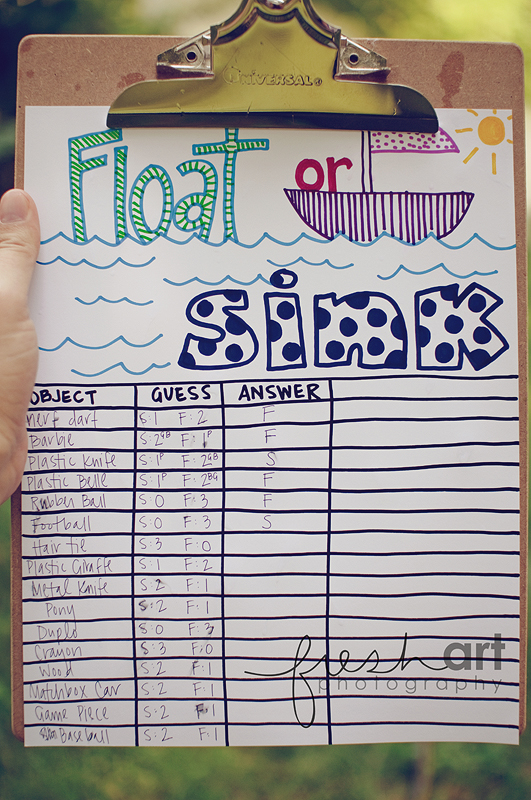 UNIVERSAL®
Float or
sink
OBJECT GUESS ANSWER
nerf dart S:1 F:2 F
Barbie S:2GB F:1P F
Plastic Knife S:1P F:2GB S
Plastic Belle S:1P F:2BG F
Rubber Ball S:0 F:3 F
Football S:0 F:3 S
Hair tie S:3 F:0
Plastic Giraffe S:1 F:2
Metal Knife S:2 F:1
Pony S:2 F:1
Duplo S:0 F:3
Crayon S:3 F:0
Wood S:2 F:1
Matchbox Car S:2 F:1
Game Piece S:2 F:1
Baseball S:2 F:1
fresh art
photography